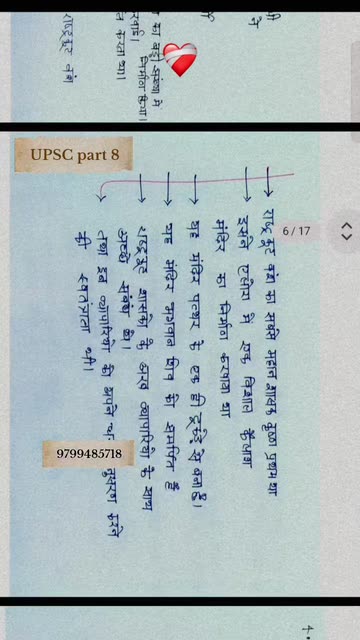 का बड़ी संख्या में
निर्माण किया।
करता था।
राष्ट्रकूट वंश
UPSC part 8
6 / 17
राष्ट्रकूट वंश का सबसे महान शासक कृष्ण प्रथम था
इसने एलोरा में एक विशाल कैलाश
मंदिर का निर्माण करवाया था
यह मंदिर पत्थर के एक ही टुकड़े से बना है।
यह मंदिर भगवान शिव को समर्पित है
राष्ट्रकूट शासकों के अरब व्यापारियों के साथ
अच्छे संबंध थे।
तथा इन व्यापारियों को अपने करने
की स्वतंत्रता थी।
9799485718